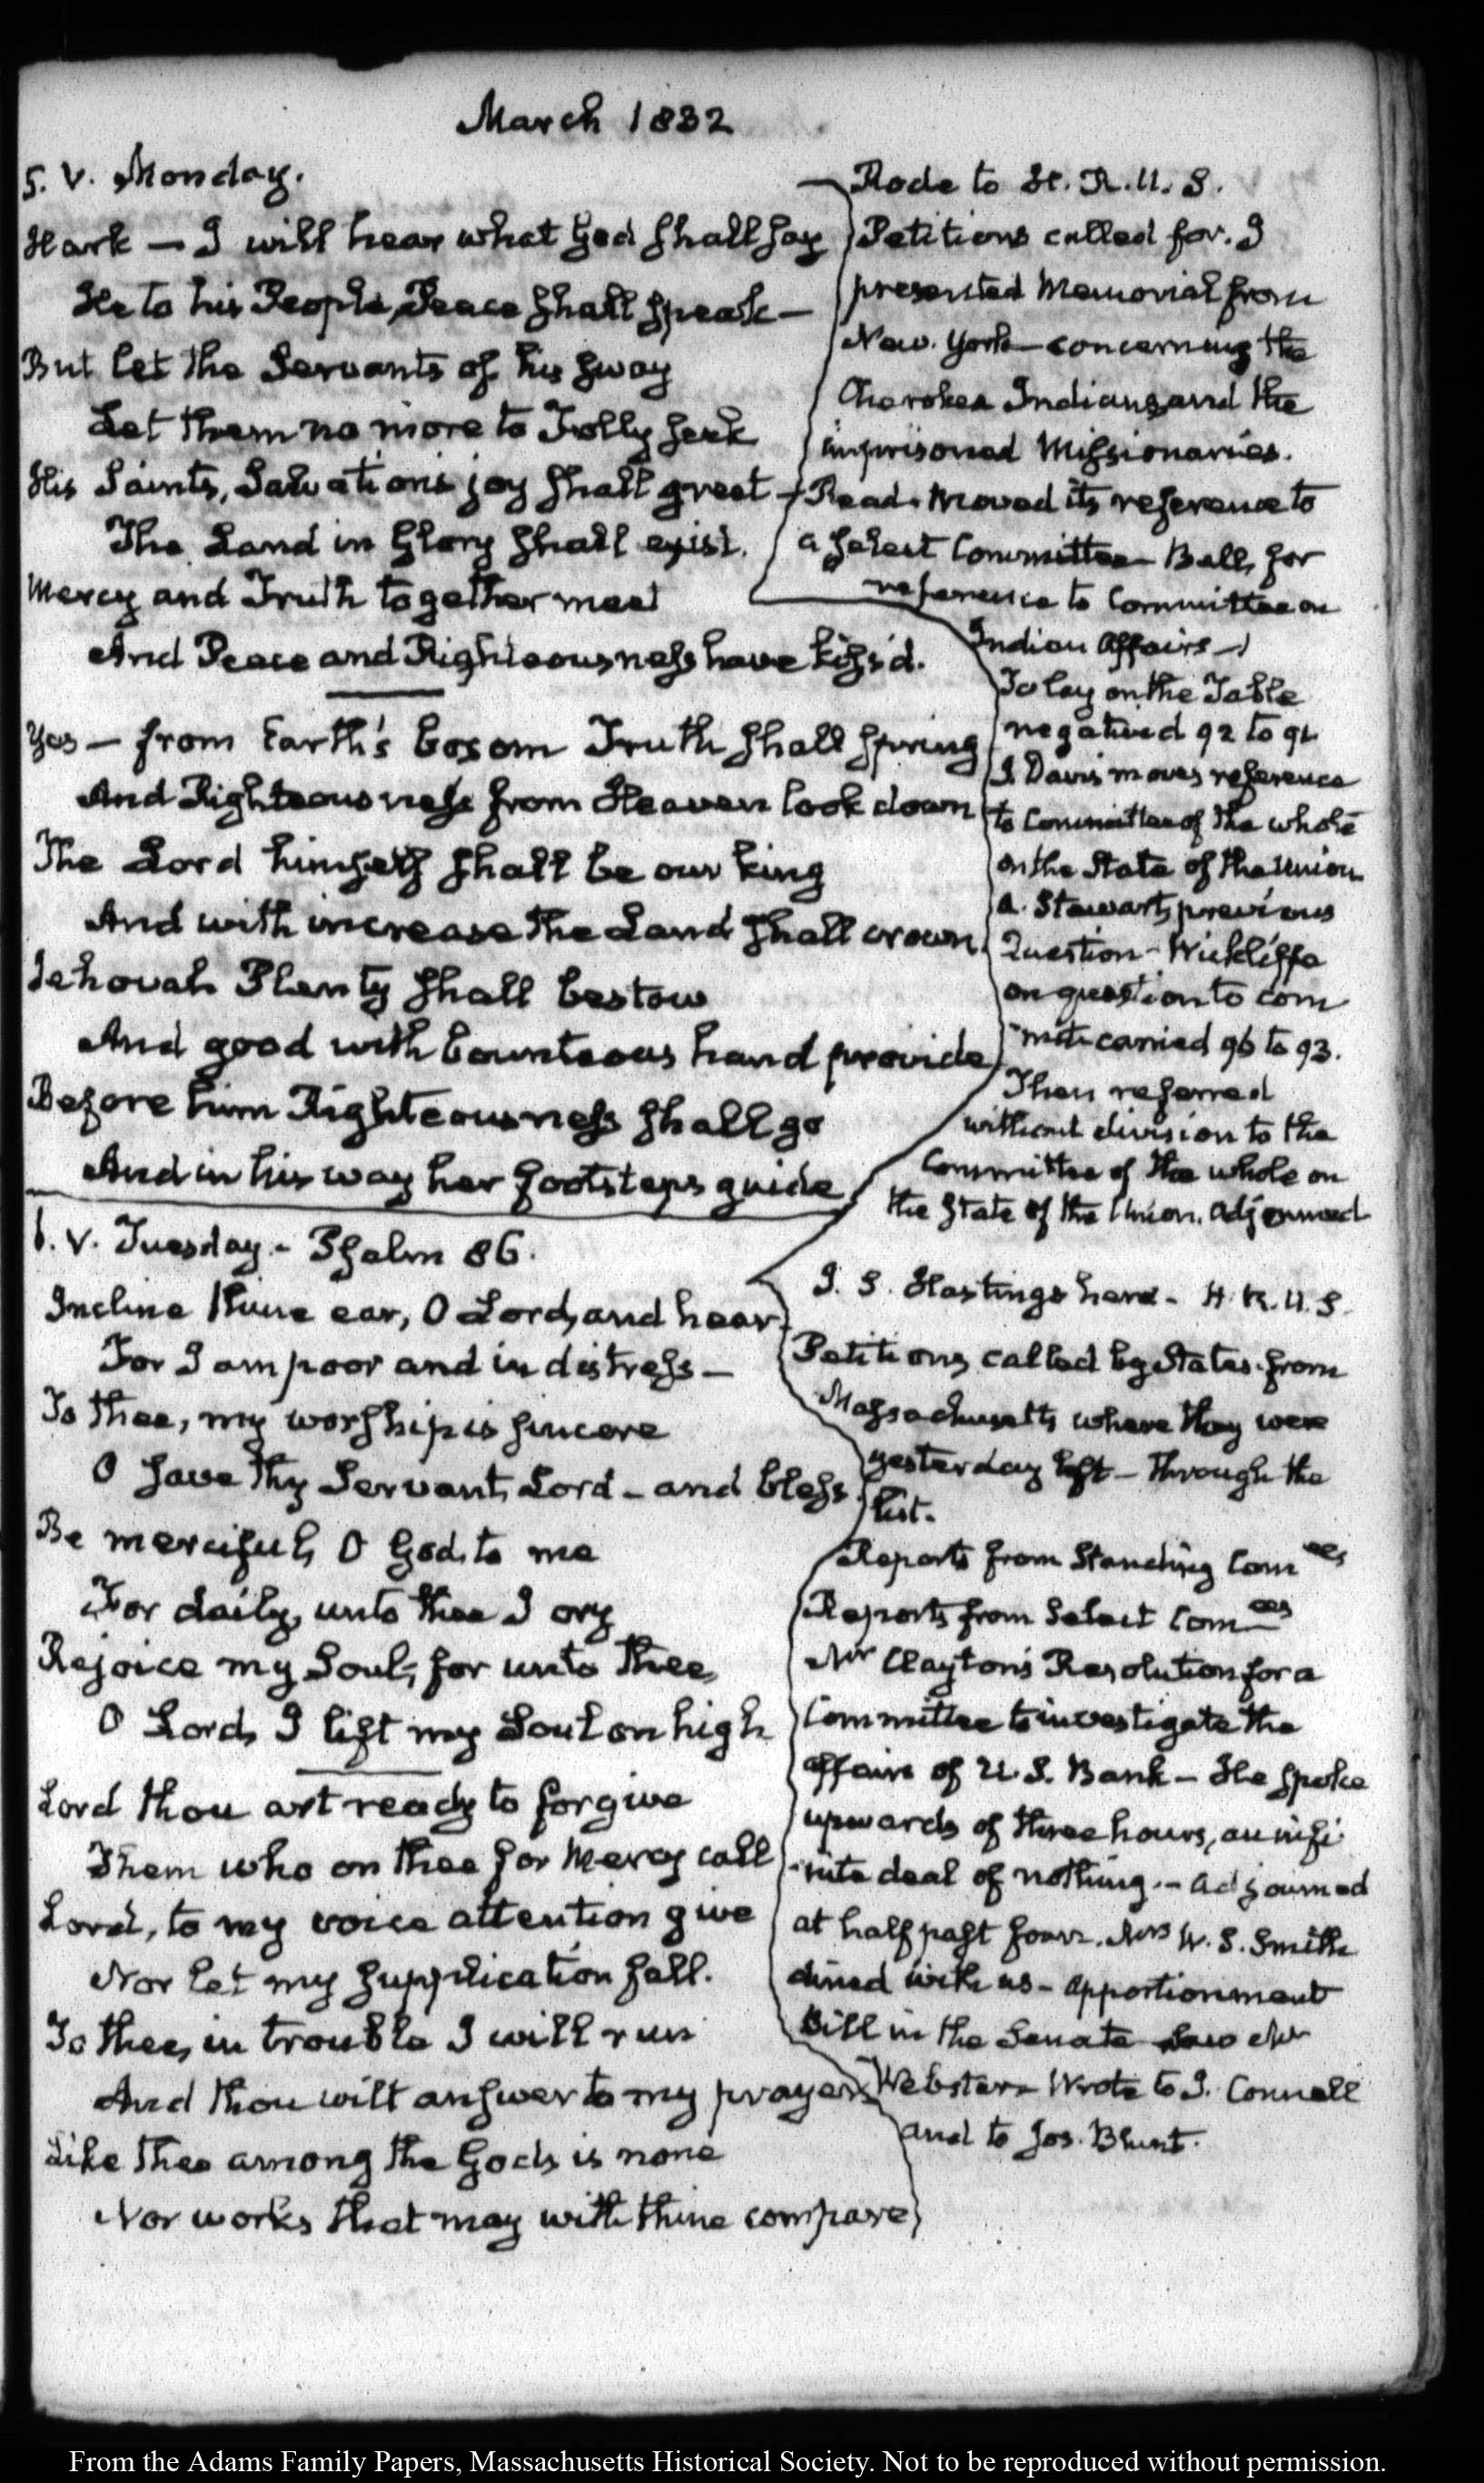 March 1832
5. V. Monday.
Hark — I will hear what God shall say
He to his People, Peace shall speak —
But let the Servants of his sway
Let them no more to Folly seek
His Saints, Salvation's joy shall greet —
The Land in Glory shall exist.
Mercy and Truth together meet
And Peace and Righteousness have kiss'd.
Yes — from Earth's bosom Truth shall spring
And Righteousness from Heaven look down
The Lord himself shall be our king
And with increase the Land shall crown.
Jehovah Plenty shall bestow
And good with bounteous hand provide
Before him Righteousness shall go
And in his way her footsteps guide
Rode to H. R. U. S.
Petitions called for. I
presented Memorial from
New. York — concerning the
Cherokee Indians, and the
imprisoned Missionaries.
Read. Moved its reference to
a select Committee — Bell, for
reference to Committee on
Indian Affairs —
To lay on the Table
negatived 92 to 91
J Davis moves reference
to Committee of the whole
on the State of the Union
A. Stewart, previous
Question — Wickliffe
on question to com
mit carried 96 to 93.
Then referred
without division to the
Committee of the whole on
the State of the Union. Adjourned
6. V. Tuesday. — Psalm 86.
Incline thine ear, O Lord, and hear
For I am poor and in distress —
To thee, my worship is sincere
O save thy Servant, Lord — and bless
Be merciful, O God, to me
For daily, unto thee I cry
Rejoice my Soul, for unto thee,
O Lord, I lift my Soul on high
Lord thou art ready to forgive
Them who on thee for Mercy call
Lord, to my voice attention give
Nor let my supplication fall.
To thee, in trouble I will run
And thou wilt answer to my prayer
Like thee among the Gods is none
Nor works that may with thine compare
J. S. Hastings here — H. R. U. S.
Petitions called by States. from
Massachusetts where they were
yesterday left — through the
list.
Reports from Standing Com ees
Reports from Select Com ees
Mr Clayton's Resolution for a
Committee to investigate the
affairs of U. S. Bank — He spoke
upwards of three hours, an infi
nite deal of nothing. — Adjourned
at half past four. Mrs W. S. Smith
dined with us — Apportionment
Bill in the Senate Saw Mr
Webster — Wrote to J. Connell
and to Jos. Blunt.
From the Adams Family Papers, Massachusetts Historical Society. Not to be reproduced without permission.